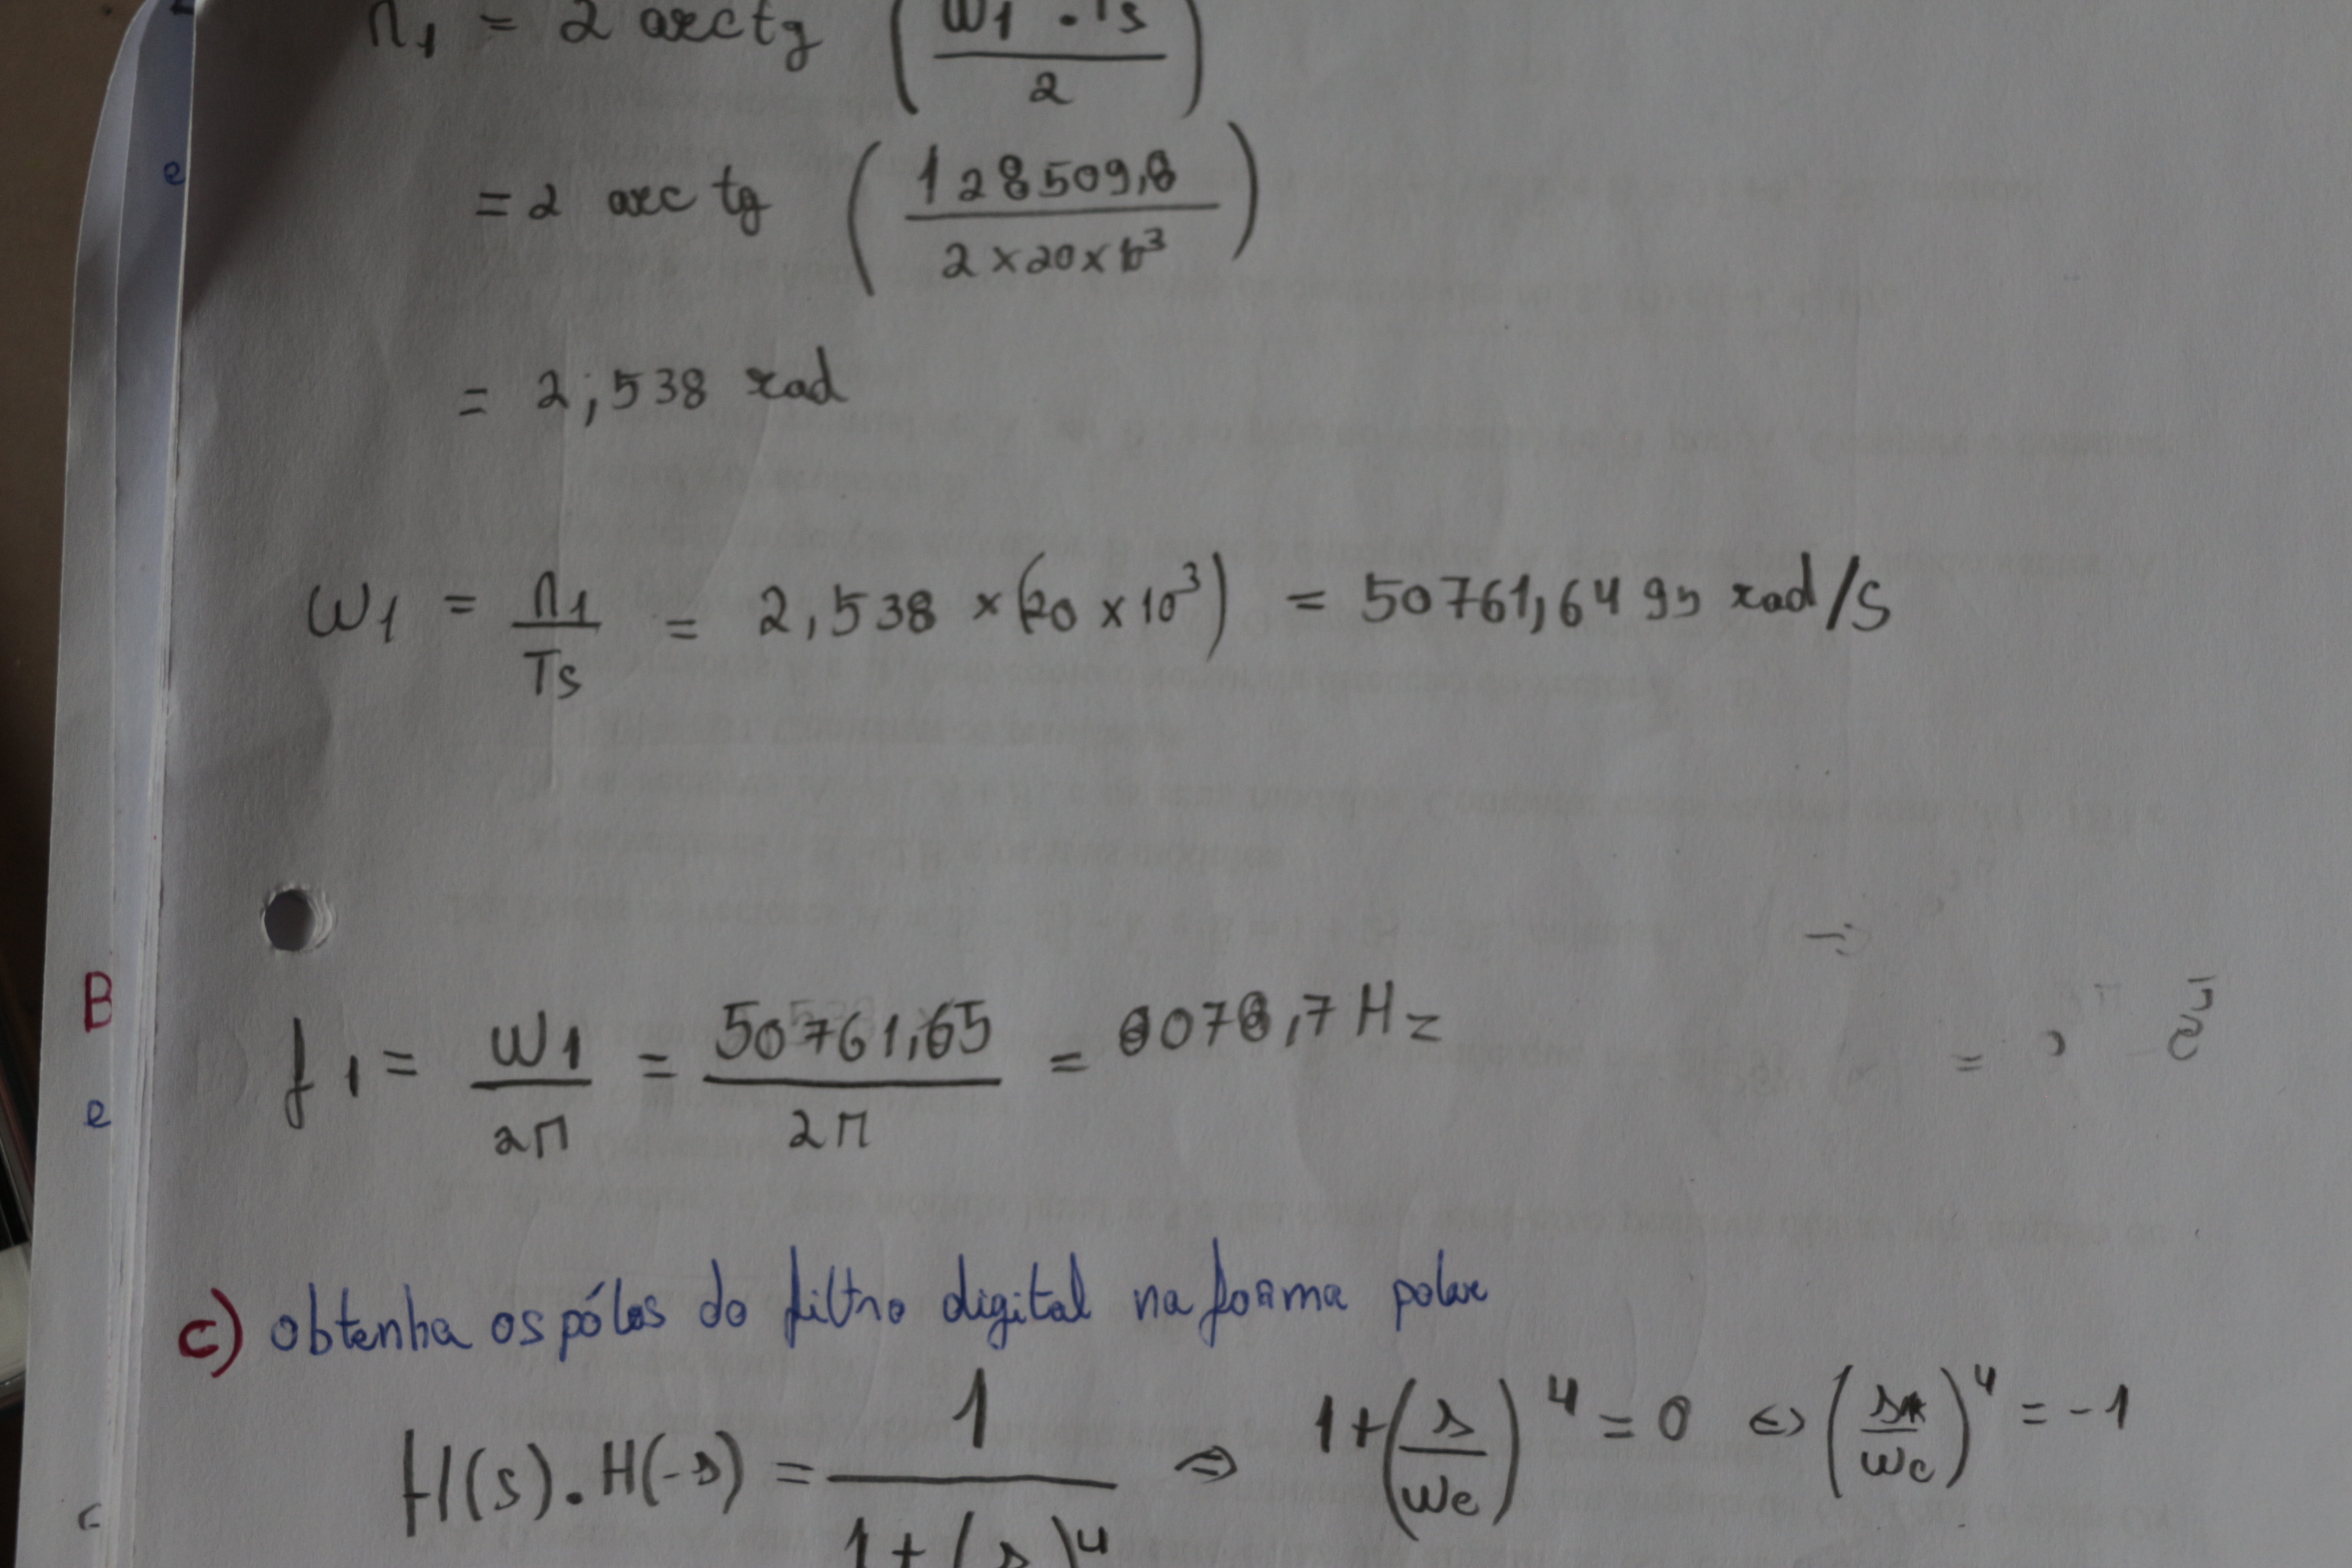 Ω1 = 2 arctg (w1 . Ts / 2)
= 2 arc tg (128509,8 / 2 × 20 × 10³)
= 2,538 rad
w1 = Ω1 / Ts = 2,538 × (20 × 10³) = 50761,6495 rad/s
B
f1 = w1 / 2π = 50761,65 / 2π = 8078,7 Hz
e
c) obtenha os pólos do filtro digital na forma polar
H(s) . H(-s) = 1 / 1 + (s )⁴ ⇒ 1 + (s / wc)⁴ = 0 ⇔ (s / wc)⁴ = -1